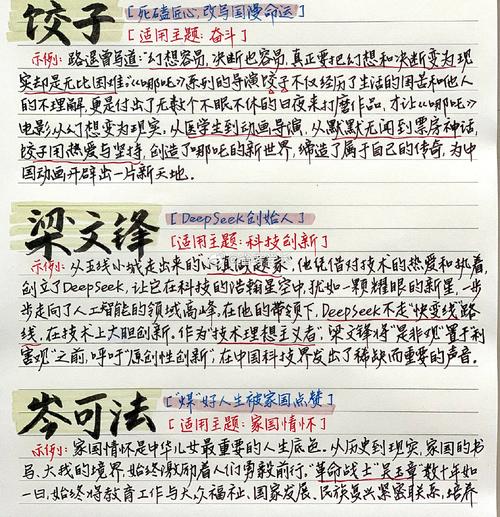 饺子 [死磕匠心,改写国漫命运]
[适用主题:奋斗]
示例: 路遥曾写道:"幻想容易,决断也容易,真正要把幻想和决断变为现
实却是无比困难。"《哪吒》系列的导演饺子不仅经历了生活的困苦和他人
的不理解,更是付出了无数个不眠不休的日夜来打磨作品,才让《哪吒》
电影从幻想变为现实。从医学生到动画导演,从默默无闻到票房神话,
饺子用热爱与坚持,创造了哪吒的新世界,缔造了属于自己的传奇,为中
国动画开辟出一片新天地。
梁文锋 [DeepSeek创始人]
[适用主题:科技创新]
示例: 从五线小城走出来的"小镇做题家",他凭借对技术的热爱和执着,
创立了DeepSeek,让它在科技的浩瀚星空中,犹如一颗耀眼的新星,一步
步走向了人工智能的领域高峰,在他的带领下,DeepSeek不走"快变线"路
线,在技术上大胆创新。作为"技术理想主义者",梁文锋将"是非观"置于"利
害观"之前,呼吁"原创性创新",在中国科技界发出了稀缺而重要的声音。
岑可法 ["煤"好人生被家国点赞]
[适用主题:家国情怀]
示例: 家国情怀是中华儿女最重要的人生底色。从历史到现实,家国的书
写、大我的境界,始终激励着人们勇毅前行。"革命战士"吴玉章数十年如
一日,始终将教育工作与大众福祉、国家发展、民族复兴紧密联系,培养